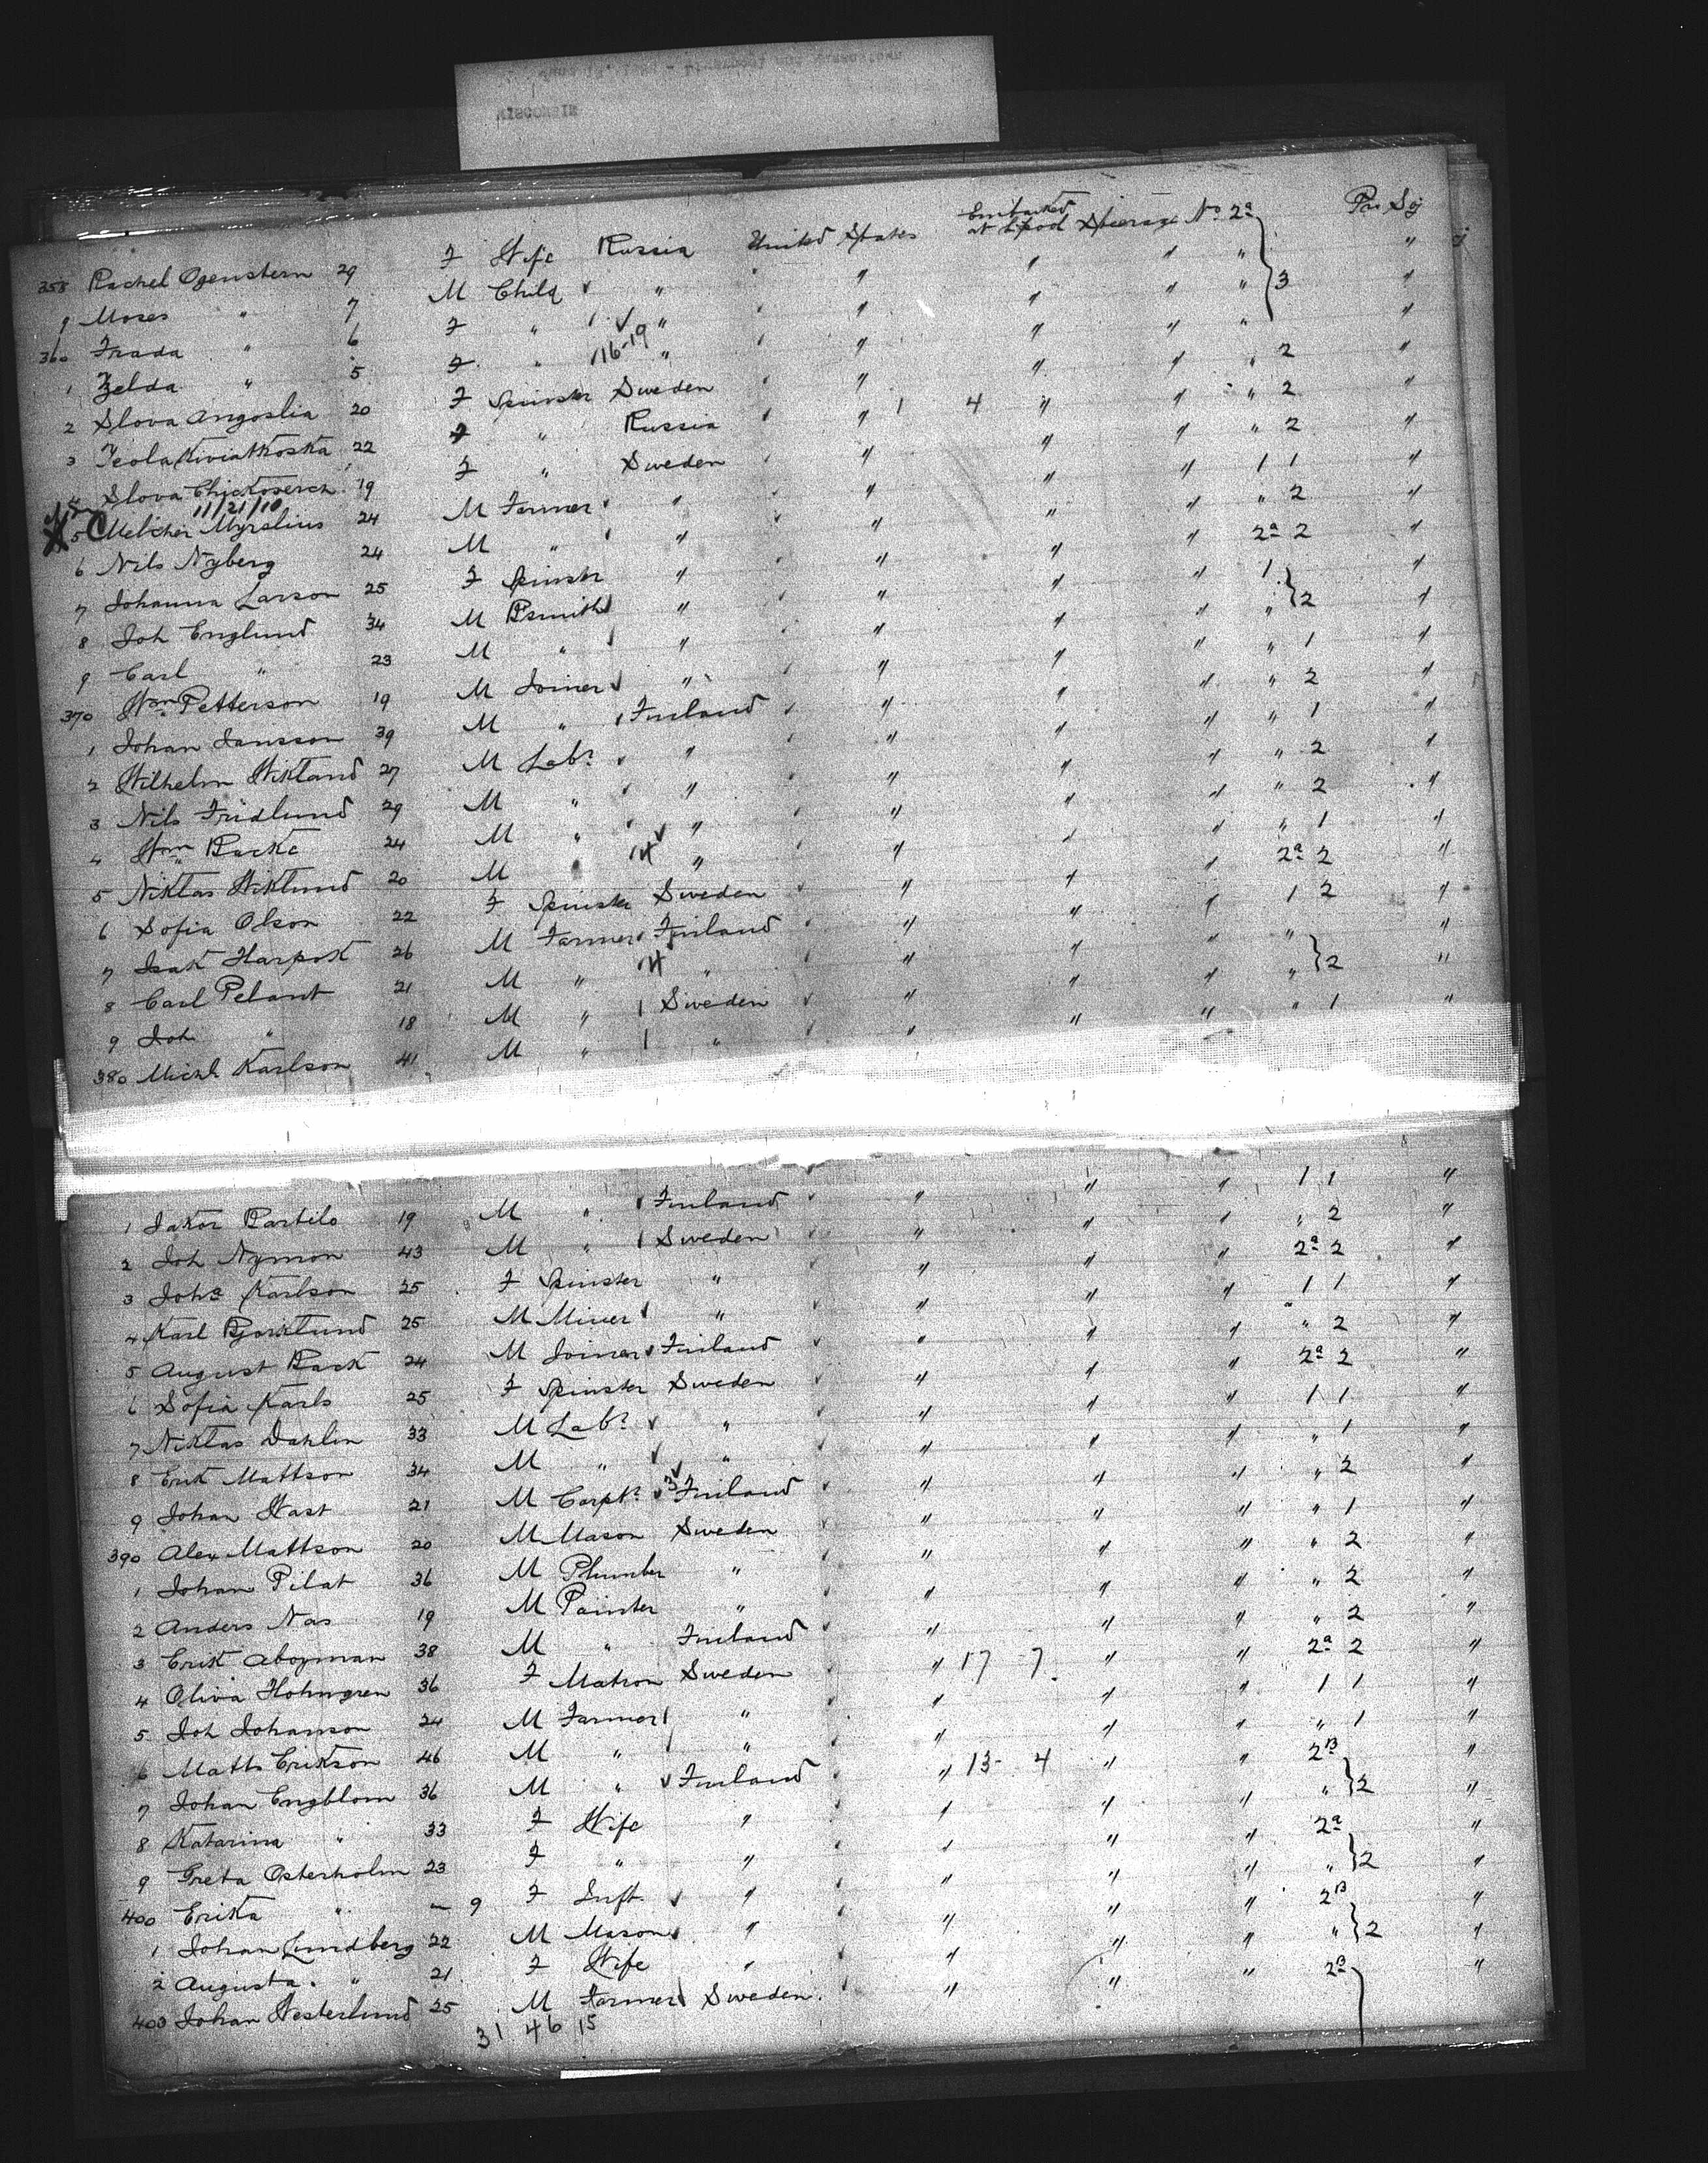 WISCONSIN
358 Rachel Ogenstern 29 F Wife Russia United States Embarked at Lpool Steerage No 2a Pro Soj
9 Moses " 7 M Child " " " " " 3 "
360 Frada " 6 F " " " " " " "
1 Zelda " 5 F " 16-19 " " " " " "
2 Slova Angoslia 20 F Spinster Sweden " " " " 2 "
3 Teola Kwiatkoska 22 F " Russia " 1 4 " " " 2 "
4 Slova 19 F " Sweden " " " " 2 "
11/21/10
X 5 Melcher Myrslius 24 M Farmer " " " " 1 1 "
6 Nils Nyberg 24 M " " " " " " 2 "
7 Johanna Larson 25 F Spinster " " " " 2a 2 "
8 Joh Englund 34 M Bsmith " " " " 1 "
9 Carl " 23 M " " " " " " 2 "
370 Wm Petterson 19 M Joiner " " " " " 1 "
1 Johan Jansson 39 M " Finland " " " " 2 "
2 Wilhelm Wiklund 27 M Labr " " " " " 1 "
3 Nils Fridlund 29 M " " " " " " 2 "
4 Wm Backe 24 M " " " " " " 2 "
5 Niklas Wiklund 20 M " 14 " " " " " 1 "
6 Sofia Olson 22 F Spinster Sweden " " " 2a 2 "
7 Isak Harpok 26 M Farmer Finland " " " 1 2 "
8 Carl Pelant 21 M " 14 " " " " " "
9 Joh " 18 M " Sweden " " " " 2 "
380 Michl Karlson 41 M " " " " " " 1 "
1 Jakor Partilo 19 M " Finland " " " 1 1 "
2 Joh Nyman 43 M " Sweden " " " " 2 "
3 Joha Karlson 25 F Spinster " " " " 2a 2 "
4 Karl Bjorklund 25 M Miner " " " " 1 1 "
5 August Back 24 M Joiner Finland " " " " 2 "
6 Sofia Karls 25 F Spinster Sweden " " " 2a 2 "
7 Niklas Dahlin 33 M Labr " " " " 1 1 "
8 Erik Mattson 34 M " " " " " " 1 "
9 Johan Wast 21 M Carptr 3 Finland " " " " 2 "
390 Alex Mattson 20 M Mason Sweden " " " " 1 "
1 Johan Pilat 36 M Plumber " " " " " 2 "
2 Anders Nas 19 M Painter " " " " " 2 "
3 Erik Abogman 38 M " Finland " " " " 2 "
4 Oliva Holmgren 36 F Matron Sweden " 17 - 7 " " 2a 2 "
5 Joh Johanson 24 M Farmer " " " " 1 1 "
6 Matts Erikson 46 M " " " " " " 1 "
7 Johan Engblom 36 M " Finland " 13 - 4 " " 2B "
8 Katarina " 33 F Wife " " " " " 2 "
9 Greta Osterholm 23 F " " " " " 2a "
400 Erika " — 9 F Inft " " " " " 2 "
1 Johan Lundberg 22 M Mason " " " " 2B "
2 Augusta " 21 F Wife " " " " " 2 "
403 Johan Westerlund 25 M Farmer Sweden " " " 2B "
31 46 15